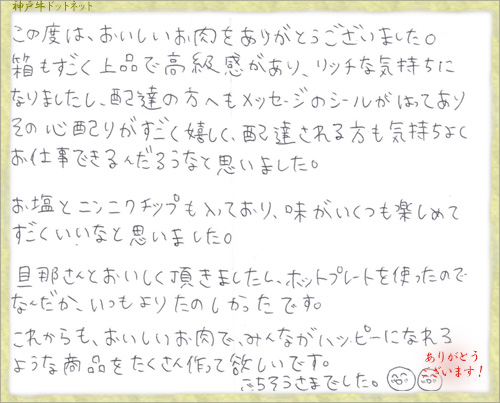 神戸牛ドットネット
この度は、おいしいお肉をありがとうございました。
箱もすごく上品で高級感があり、リッチな気持ちに
なりましたし、配達の方へもメッセージのシールがはってあり
その心配りがすごく嬉しく、配達される方も気持ちよく
お仕事できるんだろうなと思いました。
お塩とニンニクチップも入っており、味がいくつも楽しめて
すごくいいなと思いました。
旦那さんとおいしく頂きましたし、ホットプレートを使ったので
なんだか、いつもよりたのしかったです。
これからも、おいしいお肉で、みんながハッピーになれる
ような商品をたくさん作って欲しいです。
ごちそうさまでした。
ありがとう
ございます!